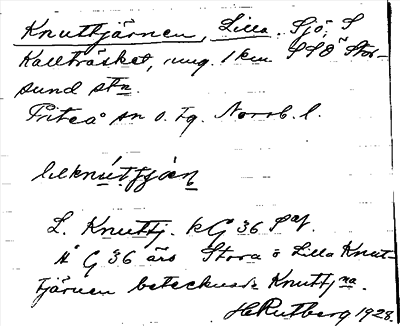 Knuttjärnen, Lilla. Sjö, S
Kallträsket, ung. 1 km SSO Stor-
sund stn.
Piteå sn o. tg. Norrb. l.
lilknútfjä̀n
L. Knuttj. kG 36 Saf.
Å G 36 äro Stora o Lilla Knut-
tjärnen betecknade Knuttjna.
H Rutberg 1928.